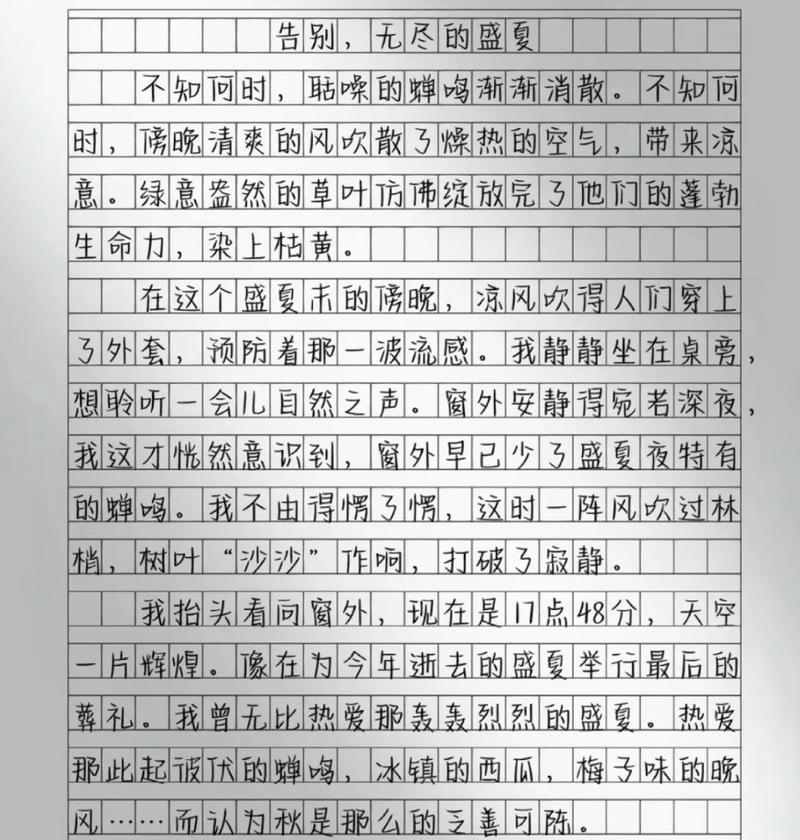 告别，无尽的盛夏
不知何时，聒噪的蝉鸣渐渐消散。不知何
时，傍晚清爽的风吹散了燥热的空气，带来凉
意。绿意盎然的草叶仿佛绽放完了他们的蓬勃
生命力，染上枯黄。
在这个盛夏末的傍晚，凉风吹得人们穿上
了外套，预防着那一波流感。我静静坐在桌旁，
想聆听一会儿自然之声。窗外安静得宛若深夜，
我这才恍然意识到，窗外早已少了盛夏夜特有
的蝉鸣。我不由得愣了愣，这时一阵风吹过林
梢，树叶“沙沙”作响，打破了寂静。
我抬头看向窗外，现在是17点48分，天空
一片辉煌。像在为今年逝去的盛夏举行最后的
葬礼。我曾无比热爱那轰轰烈烈的盛夏。热爱
那此起彼伏的蝉鸣，冰镇的西瓜，梅子味的晚
风……而认为秋是那么的乏善可陈。